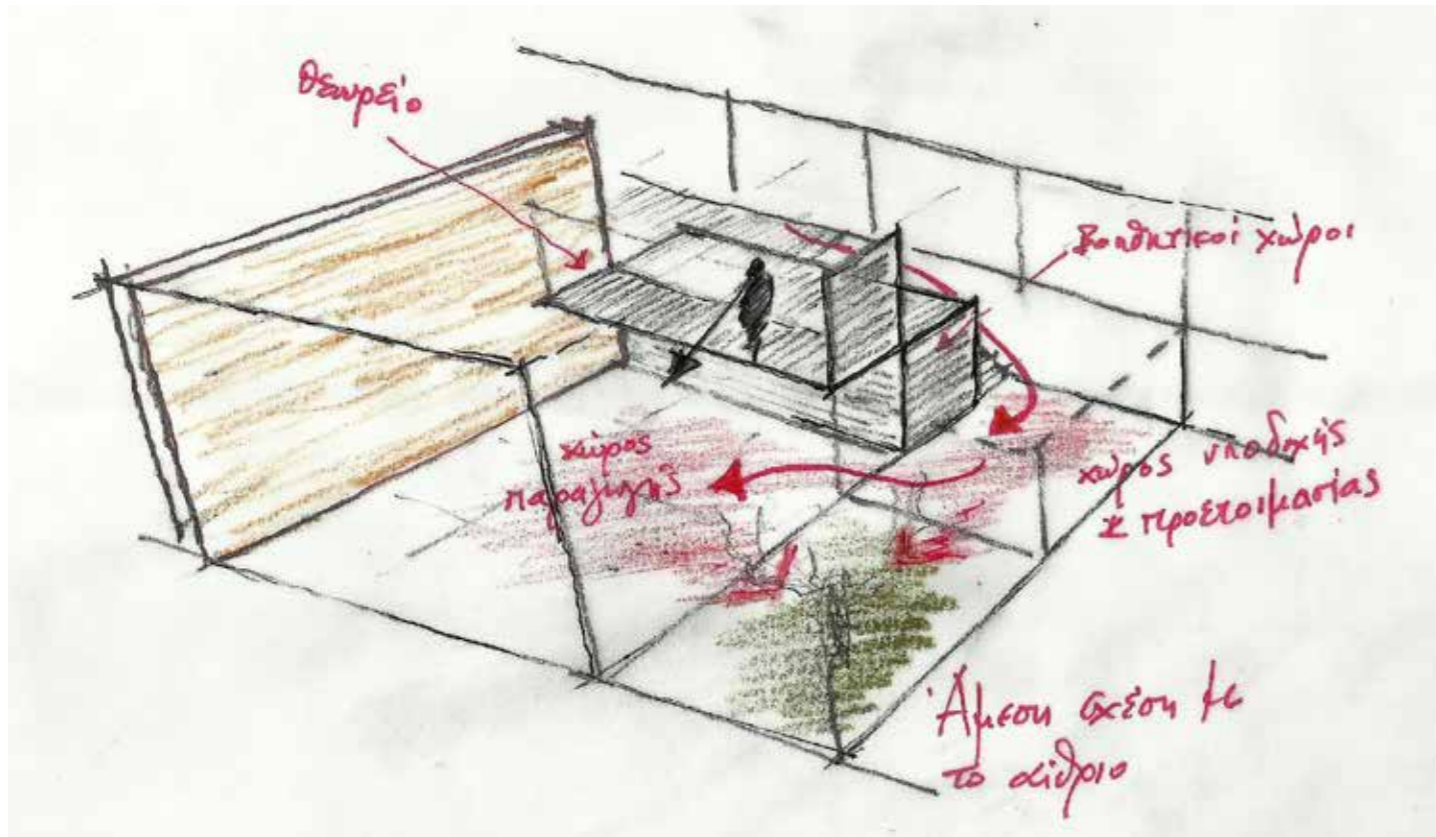 θεωρείο
βοηθητικοί χώροι
χώρος
παραγωγής
χώρος υποδοχής
& προετοιμασίας
Άμεση σχέση με
το αίθριο